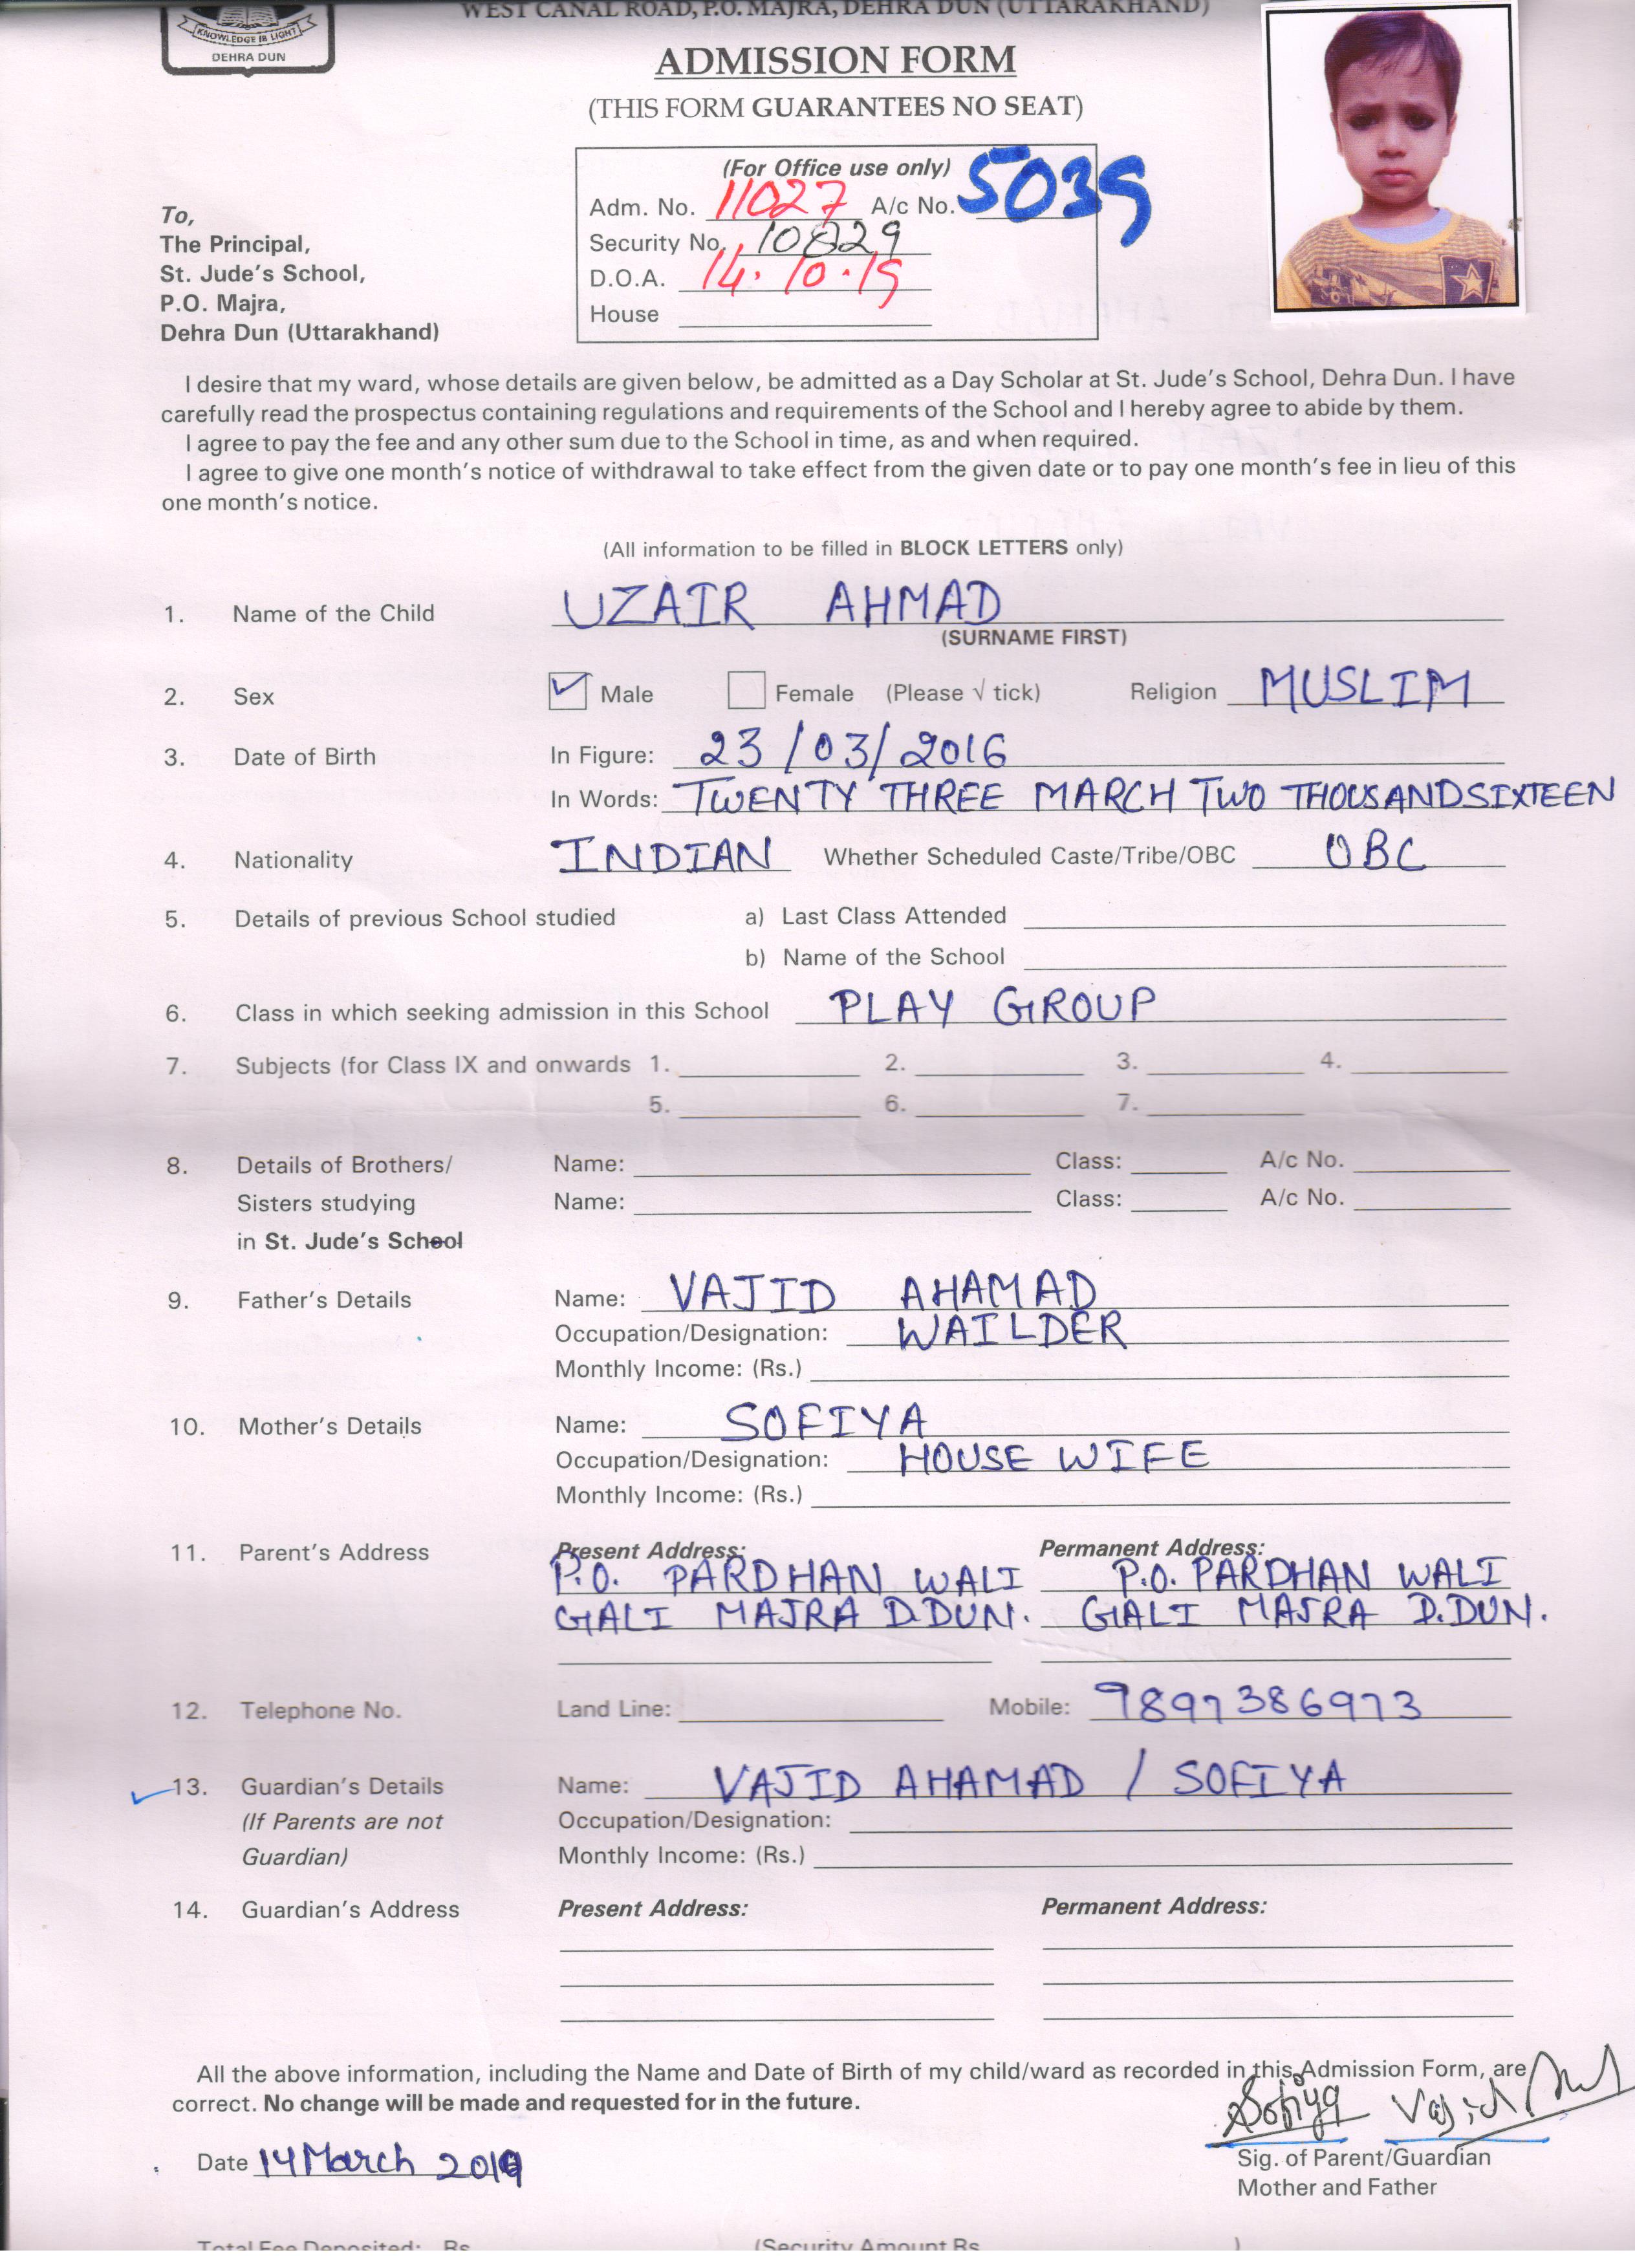 WEST CANAL ROAD, P.O. MAJRA, DEHRA DUN (UTTARAKHAND)
KNOWLEDGE IS LIGHT
DEHRA DUN
ADMISSION FORM
(THIS FORM GUARANTEES NO SEAT)
(For Office use only)
Adm. No. 11027 A/c No. 5039
Security No. 10829
D.O.A. 14.10.19
House
To,
The Principal,
St. Jude's School,
P.O. Majra,
Dehra Dun (Uttarakhand)
I desire that my ward, whose details are given below, be admitted as a Day Scholar at St. Jude's School, Dehra Dun. I have
carefully read the prospectus containing regulations and requirements of the School and I hereby agree to abide by them.
I agree to pay the fee and any other sum due to the School in time, as and when required.
I agree to give one month's notice of withdrawal to take effect from the given date or to pay one month's fee in lieu of this
one month's notice.
(All information to be filled in BLOCK LETTERS only)
1. Name of the Child UZAIR AHMAD
(SURNAME FIRST)
2. Sex Male Female (Please √ tick) Religion MUSLIM
3. Date of Birth In Figure: 23/03/2016
In Words: TWENTY THREE MARCH TWO THOUSAND SIXTEEN
4. Nationality INDIAN Whether Scheduled Caste/Tribe/OBC OBC
5. Details of previous School studied a) Last Class Attended
b) Name of the School
6. Class in which seeking admission in this School PLAY GROUP
7. Subjects (for Class IX and onwards 1. 2. 3. 4.
5. 6. 7.
8. Details of Brothers/ Name: Class: A/c No.
Sisters studying Name: Class: A/c No.
in St. Jude's School
9. Father's Details Name: VAJID AHAMAD
Occupation/Designation: WAILDER
Monthly Income: (Rs.)
10. Mother's Details Name: SOFIYA
Occupation/Designation: HOUSE WIFE
Monthly Income: (Rs.)
11. Parent's Address Present Address: Permanent Address:
P.O. PARDHAN WALI P.O. PARDHAN WALI
GALI MAJRA D.DUN. GALI MAJRA D.DUN.
12. Telephone No. Land Line: Mobile: 9897386973
13. Guardian's Details Name: VAJID AHAMAD / SOFIYA
(If Parents are not Occupation/Designation:
Guardian) Monthly Income: (Rs.)
14. Guardian's Address Present Address: Permanent Address:
All the above information, including the Name and Date of Birth of my child/ward as recorded in this Admission Form, are
correct. No change will be made and requested for in the future.
Sofiya Vajid
Date 14 March 2019
Sig. of Parent/Guardian
Mother and Father
Total Fee Deposited: Rs. (Security Amount Rs. )